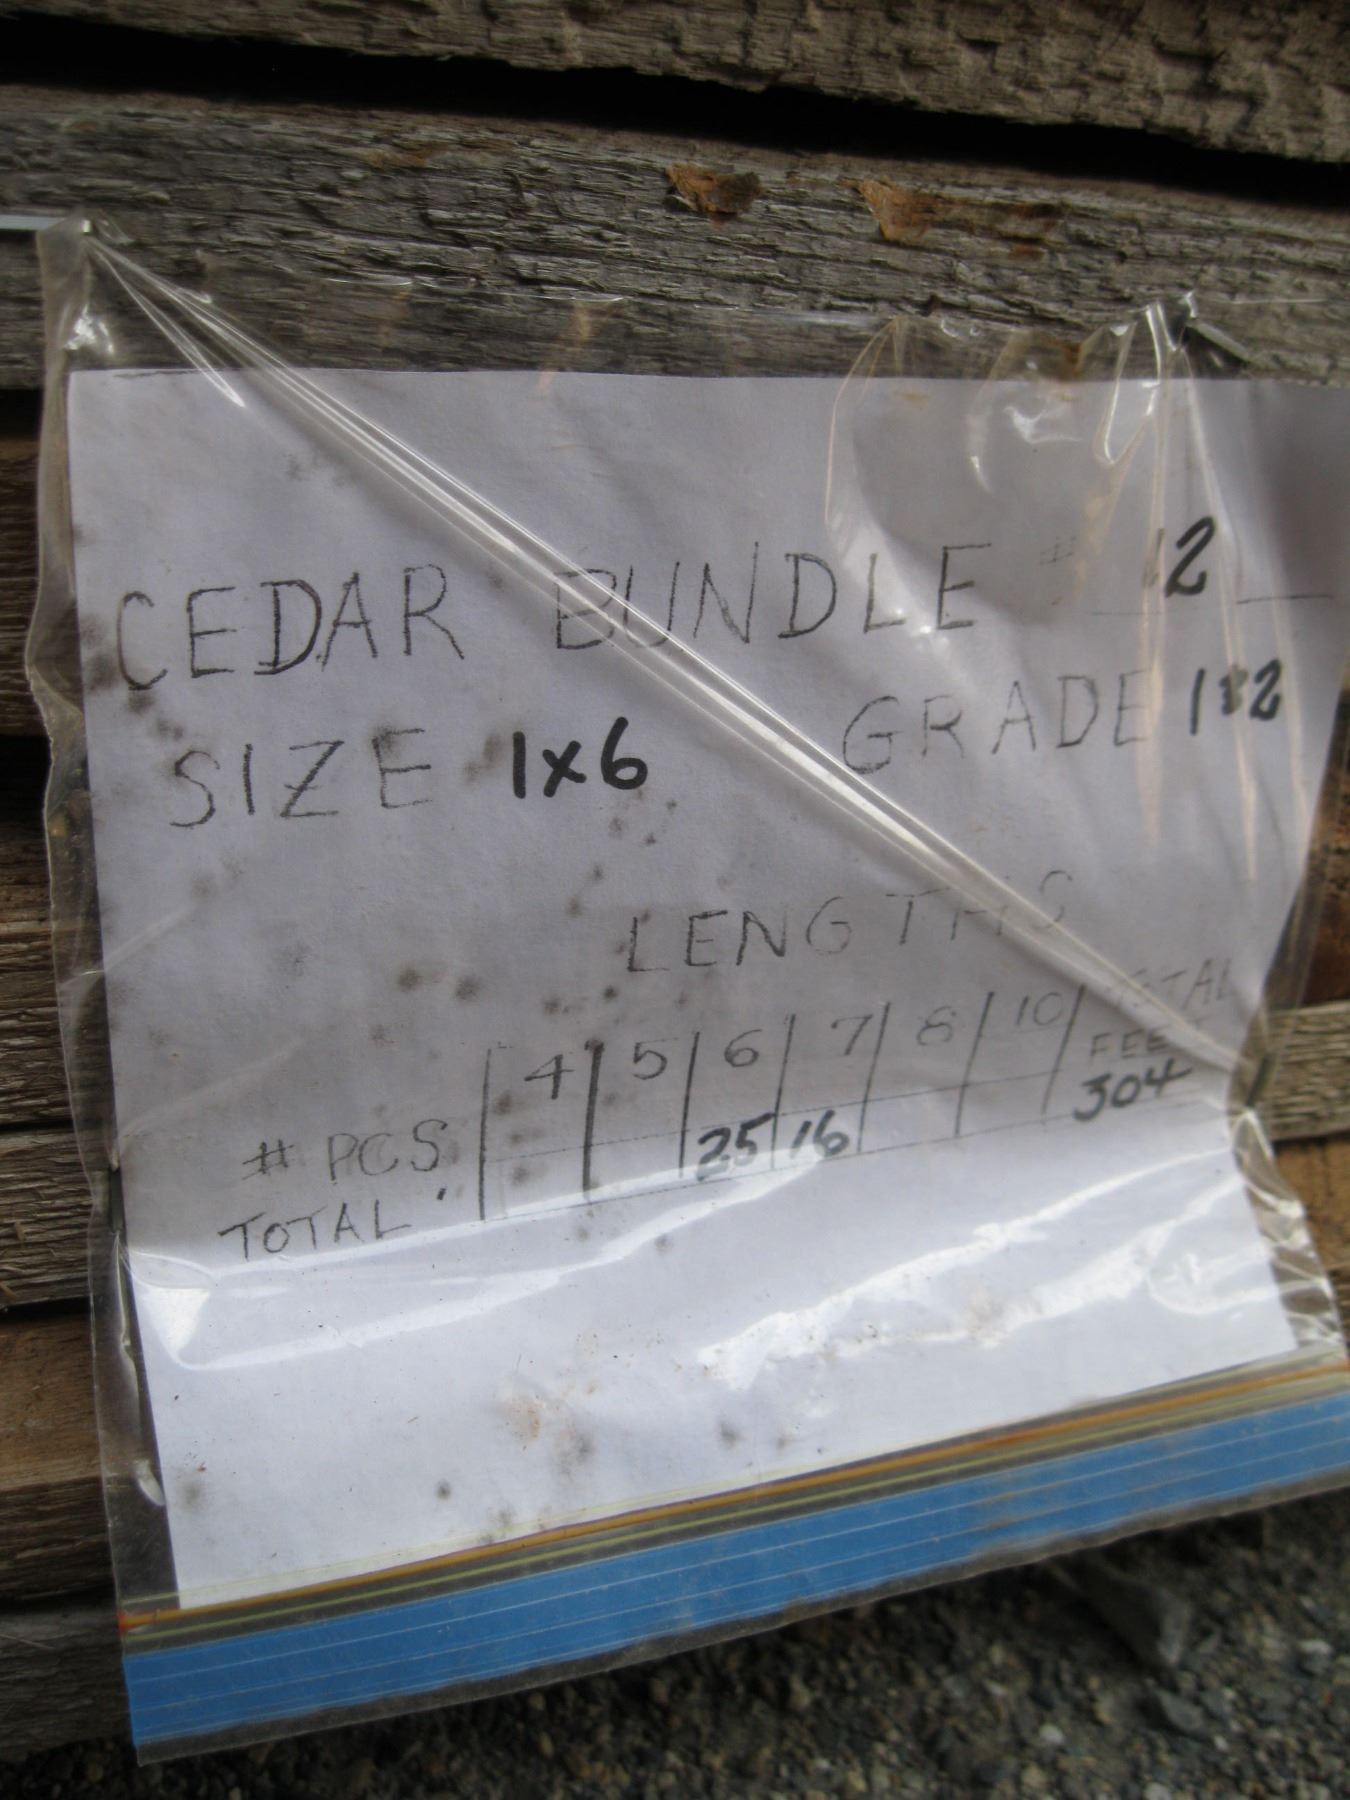 CEDAR BUNDLE # 12
SIZE 1x6 GRADE 1&2
LENGTHS
4 5 6 7 8 10 TOTAL FEET
# PCS 25 16 304
TOTAL